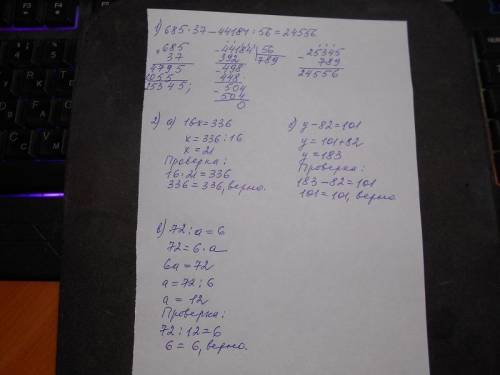 1) 685·37–44184:56=24556
×685
37
4795
2055
25345;
–44184 | 56
392 | 789
–498
448
–504
504
0
–25345
789
24556
2) а) 16x=336
x=336:16
x=21
Проверка:
16·21=336
336=336, верно.
б) y–82=101
y=101+82
y=183
Проверка:
183–82=101
101=101, верно
в) 72:a=6
72=6·a
6a=72
a=72:6
a=12
Проверка:
72:12=6
6=6, верно.